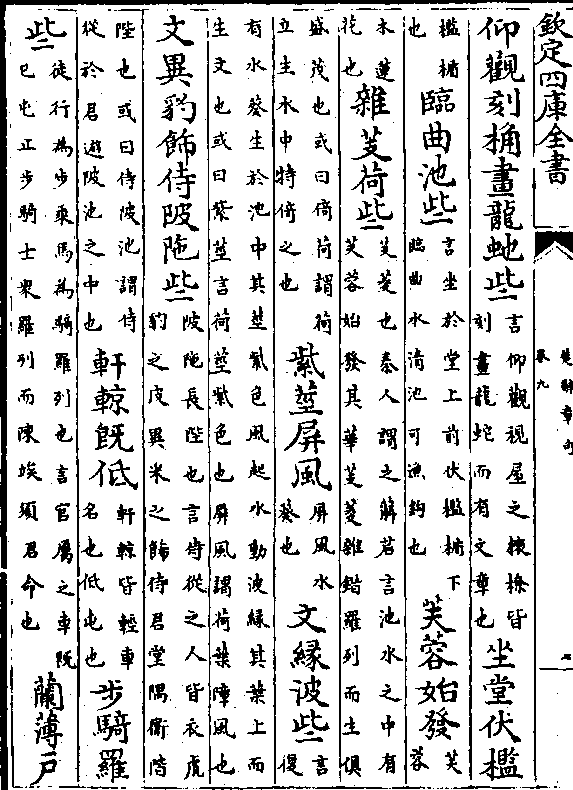 欽定四庫全書
楚辭章句
卷九
仰觀刻桷畫龍虵些言仰觀視屋之椽橑皆刻畫龍蛇而有文章也坐堂伏檻
檻楯也臨曲池些言坐於堂上前伏檻楯下臨曲水清池可漁釣也芙蓉始發芙蓉
木蓮花也雜芰荷些芰菱也秦人謂之薢茩言池水之中有芙蓉始發其華芰菱雜錯羅列而生俱
盛茂也或曰倚荷謂荷立生水中特倚之也紫莖屏風屏風水葵也文緣波些言復
有水葵生於池中其莖紫色風起水動波緣其葉上而生文也或曰紫莖言荷莖紫色也屏風謂荷葉障風也
文異豹飾侍陂陁些陂陁長陛也言侍從之人皆衣虎豹之皮異采之飾侍君堂隅衛階
陛也或曰侍陂池謂侍從於君遊陂池之中也軒輬既低軒輬皆輕車名也低屯也步騎羅
些徒行為步乘馬為騎羅列也言官屬之車既已屯正步騎士衆羅列而陳竢須君命也蘭薄戶